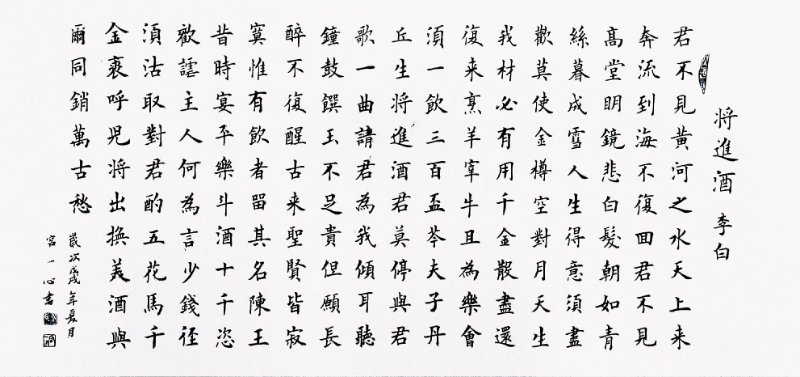 将進酒 李白
君不見黃河之水天上来
奔流到海不復回君不見
髙堂明鏡悲白髮朝如青
絲暮成雪人生得意須盡
歡莫使金樽空對月天生
我材必有用千金散盡還
復来烹羊宰牛且為樂會
須一飲三百盃岑夫子丹
丘生将進酒君莫停與君
歌一曲請君為我傾耳聽
鐘鼓饌玉不足貴但願長
醉不復醒古来聖賢皆寂
寞惟有飲者留其名陳王
昔時宴平樂斗酒十千恣
歡謔主人何為言少錢徑
須沽取對君酌五花馬千
金裘呼兒将出換美酒與
爾同銷萬古愁
歲次戊戌年夏月
宮一心書